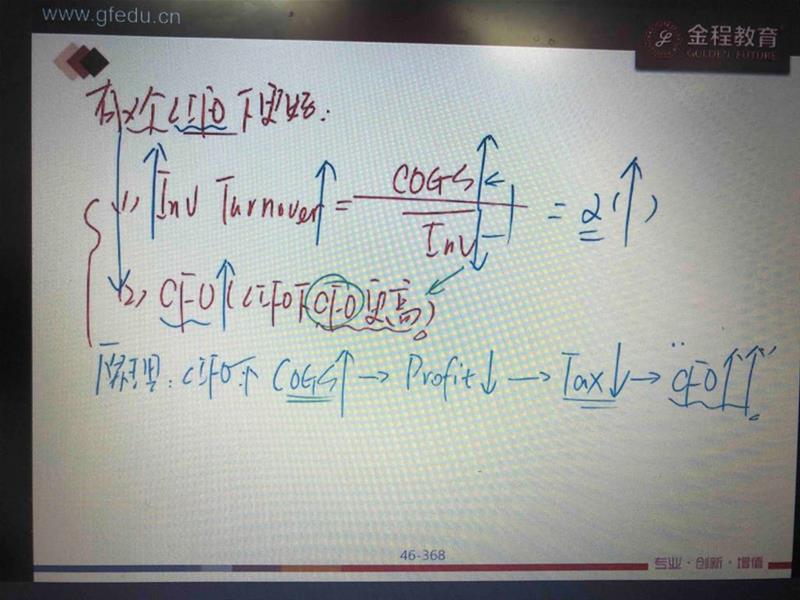 www.gfedu.cn
金程教育
GOLDEN FUTURE
有2个LIFO下更好:
1) Inv Turnover = COGS / Inv = 2 (↑)
2) CFO↑(LIFO下CFO更高)
原理: LIFO下 COGS↑ → Profit↓ → Tax↓ → CFO↑↑
46-368
专业·创新·增值